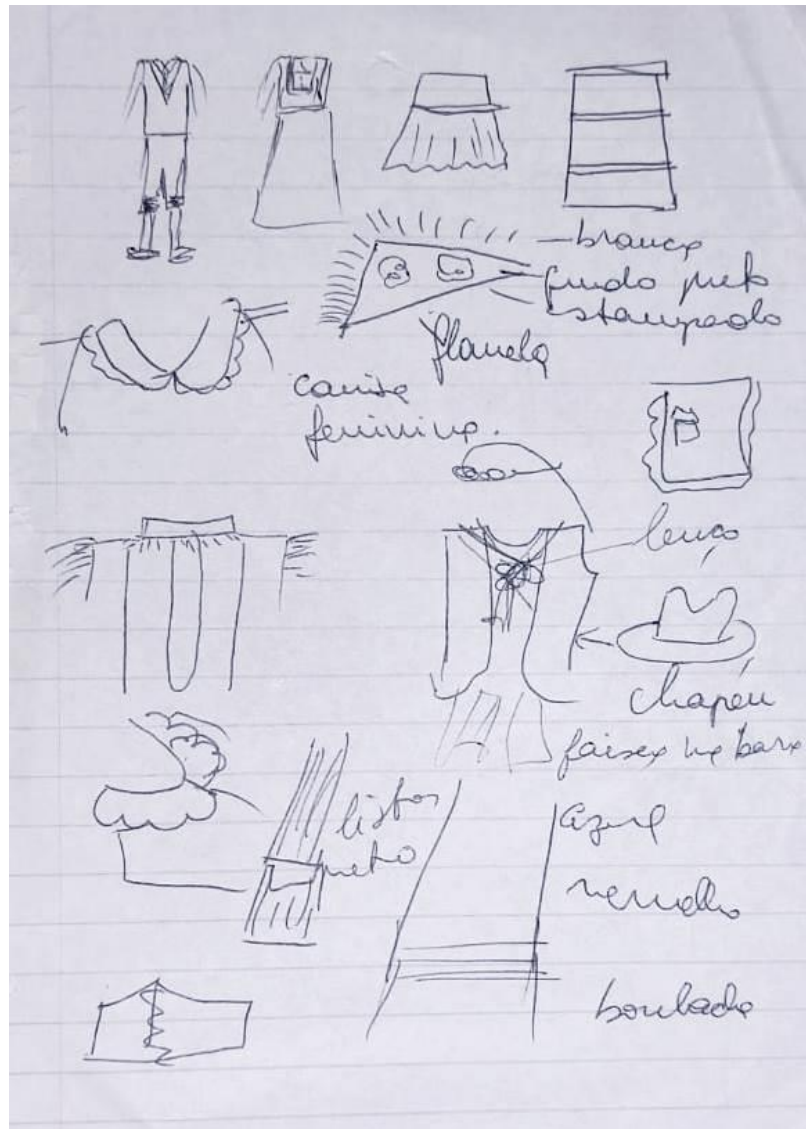 branca
fundo preto
estampado
flanela
camisa
feminina.
lenço
chapéu
faixa na barra
listas
preto
azul
vermelho
bordada